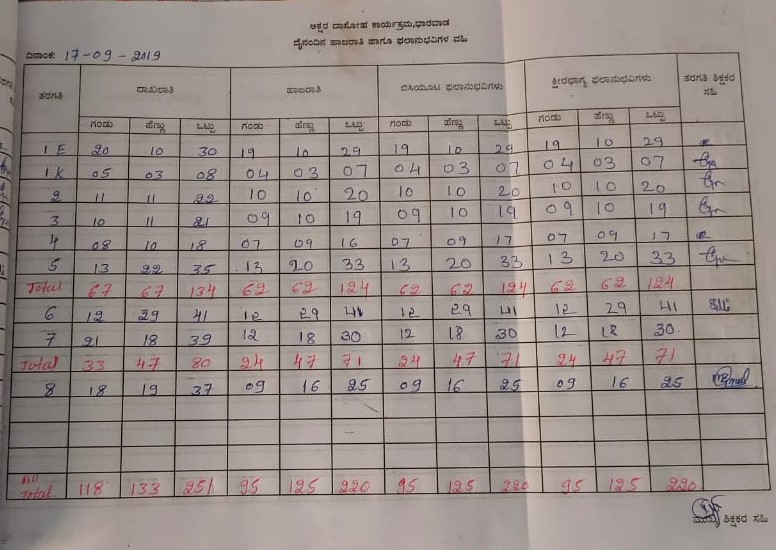 ಅಕ್ಷರ ದಾಸೋಹ ಕಾರ್ಯಕ್ರಮ,ಧಾರವಾಡ
ದೈನಂದಿನ ಹಾಜರಾತಿ ಹಾಗೂ ಫಲಾನುಭವಿಗಳ ವಹಿ
ದಿನಾಂಕ: 17-09-2019
ತರಗತಿ ದಾಖಲಾತಿ ಹಾಜರಾತಿ ಬಿಸಿಯೂಟ ಫಲಾನುಭವಿಗಳು ಕ್ಷೀರಭಾಗ್ಯ ಫಲಾನುಭವಿಗಳು ತರಗತಿ ಶಿಕ್ಷಕರ ಸಹಿ
ಗಂಡು ಹೆಣ್ಣು ಒಟ್ಟು ಗಂಡು ಹೆಣ್ಣು ಒಟ್ಟು ಗಂಡು ಹೆಣ್ಣು ಒಟ್ಟು ಗಂಡು ಹೆಣ್ಣು ಒಟ್ಟು
1 E 20 10 30 19 10 29 19 10 29 19 10 29
1 K 05 03 08 04 03 07 04 03 07 04 03 07
2 11 11 22 10 10 20 10 10 20 10 10 20
3 10 11 21 09 10 19 09 10 19 09 10 19
4 08 10 18 07 09 16 07 09 17 07 09 17
5 13 22 35 13 20 33 13 20 33 13 20 33
Total 67 67 134 62 62 124 62 62 124 62 62 124
6 12 29 41 12 29 41 12 29 41 12 29 41
7 21 18 39 12 18 30 12 18 30 12 18 30.
Total 33 47 80 24 47 71 24 47 71 24 47 71
8 18 19 37 09 16 25 09 16 25 09 16 25
All Total 118 133 251 95 125 220 95 125 220 95 125 220
ಮುಖ್ಯ ಶಿಕ್ಷಕರ ಸಹಿ